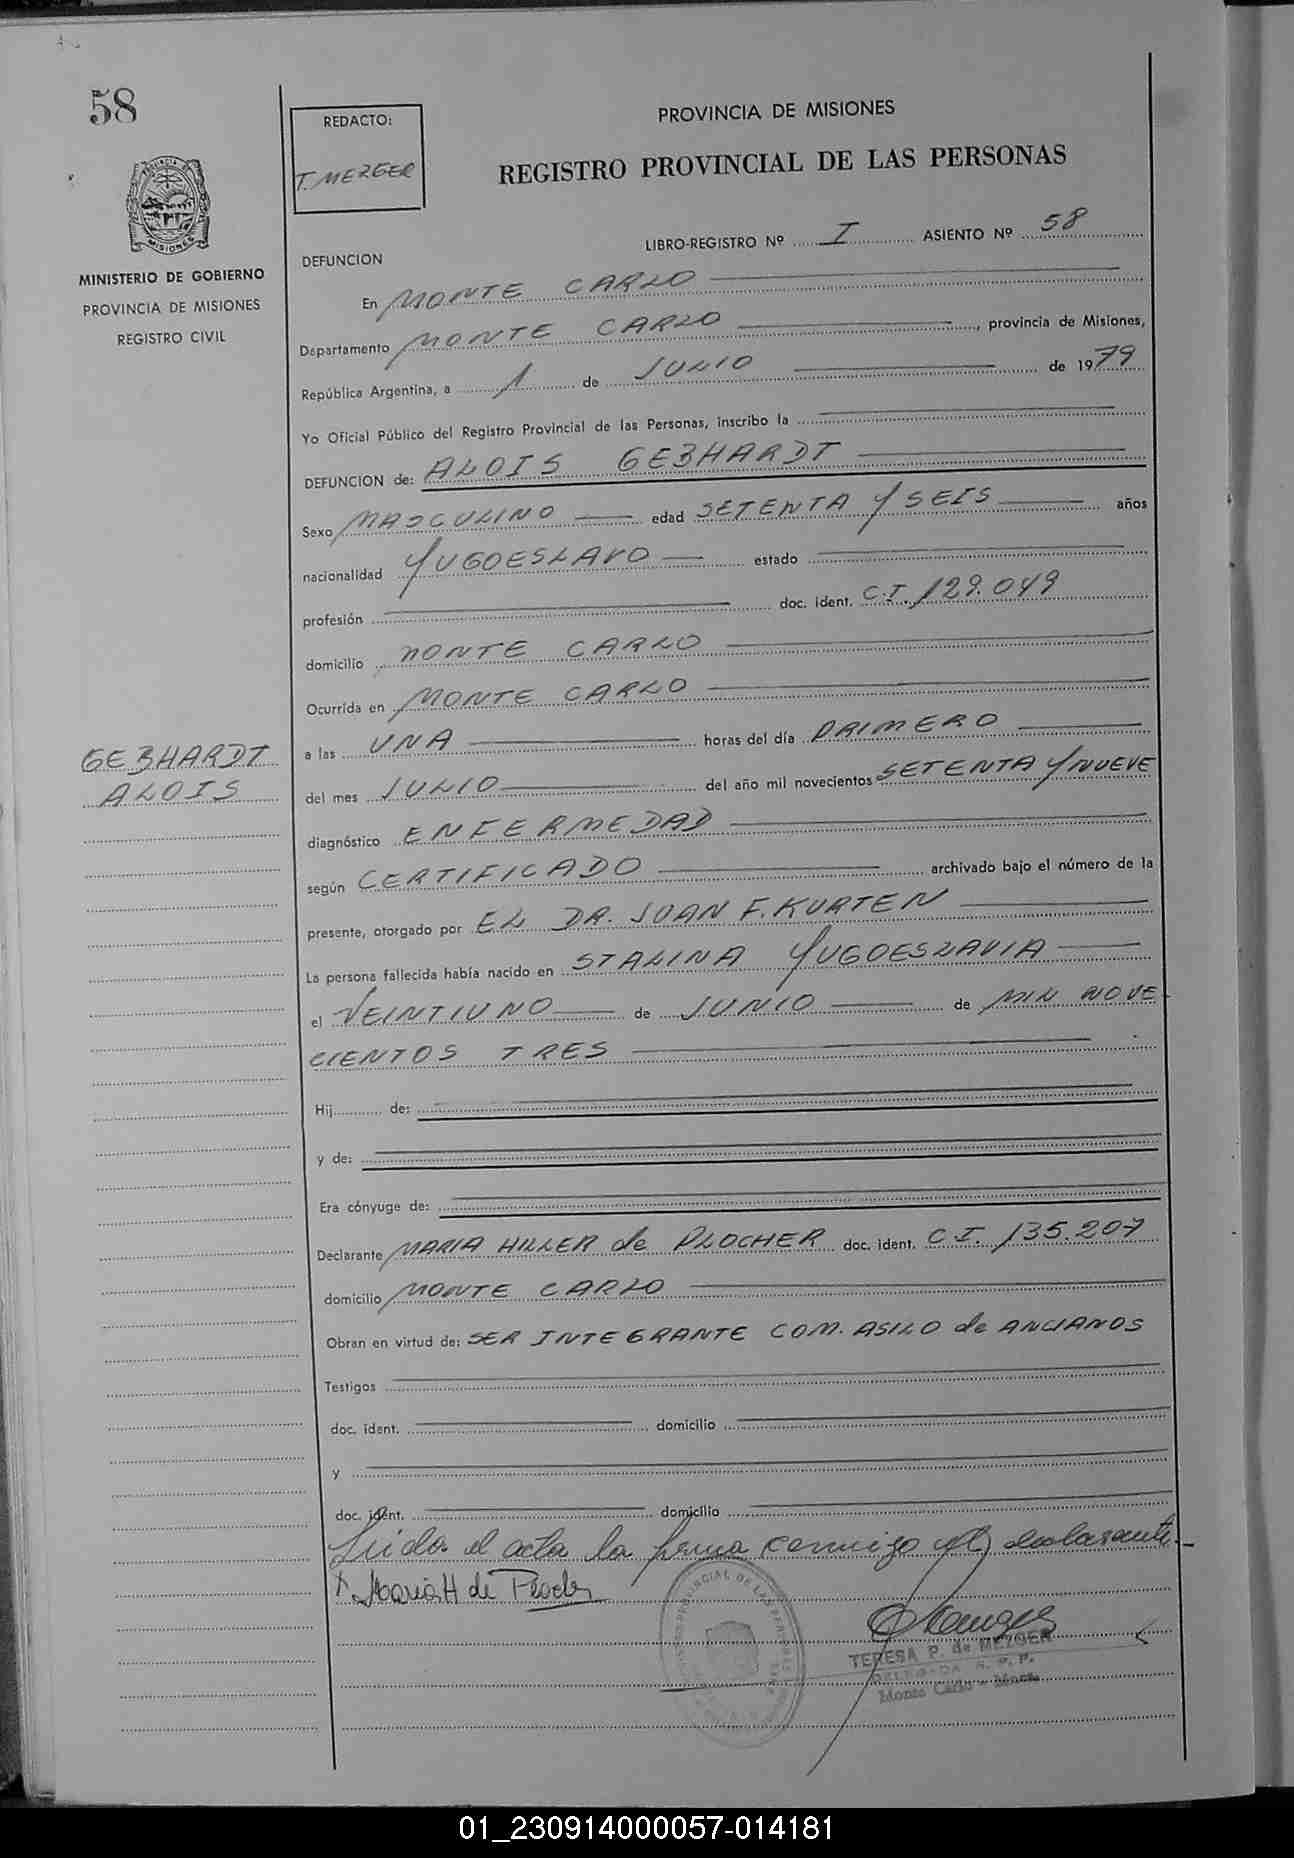 58
REDACTO:
T. MEZGER
PROVINCIA DE MISIONES
REGISTRO PROVINCIAL DE LAS PERSONAS
MISIONES
MINISTERIO DE GOBIERNO
PROVINCIA DE MISIONES
REGISTRO CIVIL
LIBRO-REGISTRO Nº I ASIENTO Nº 58
DEFUNCION
En MONTE CARLO
Departamento MONTE CARLO, provincia de Misiones,
República Argentina, a 1 de JULIO de 1979
Yo Oficial Público del Registro Provincial de las Personas, inscribo la
DEFUNCION de: ALOIS GEBHARDT
Sexo MASCULINO edad SETENTA Y SEIS años
nacionalidad YUGOESLAVO estado
profesión doc. ident. C.I. 129.049
domicilio MONTE CARLO
Ocurrida en MONTE CARLO
GEBHARDT
ALOIS
a las UNA horas del día PRIMERO
del mes JULIO del año mil novecientos SETENTA Y NUEVE
diagnóstico ENFERMEDAD
según CERTIFICADO archivado bajo el número de la
presente, otorgado por EL DR. JUAN F. KURTEN
La persona fallecida había nacido en STALINA YUGOESLAVIA
el VEINTIUNO de JUNIO de MIL NOVE
CIENTOS TRES
Hij de:
y de:
Era cónyuge de:
Declarante MARIA HILLER de PLOCHER doc. ident. C.I. 135.207
domicilio MONTE CARLO
Obran en virtud de: SER INTEGRANTE COM. ASILO de ANCIANOS
Testigos
doc. ident. domicilio
y
doc. ident. domicilio
Leida el acta la firma conmigo el declarante.
x Maria H de Plocher
TERESA P. de MEZGER
DELEGADA R. P. P.
Monte Carlo - Mnes.
01_230914000057-014181